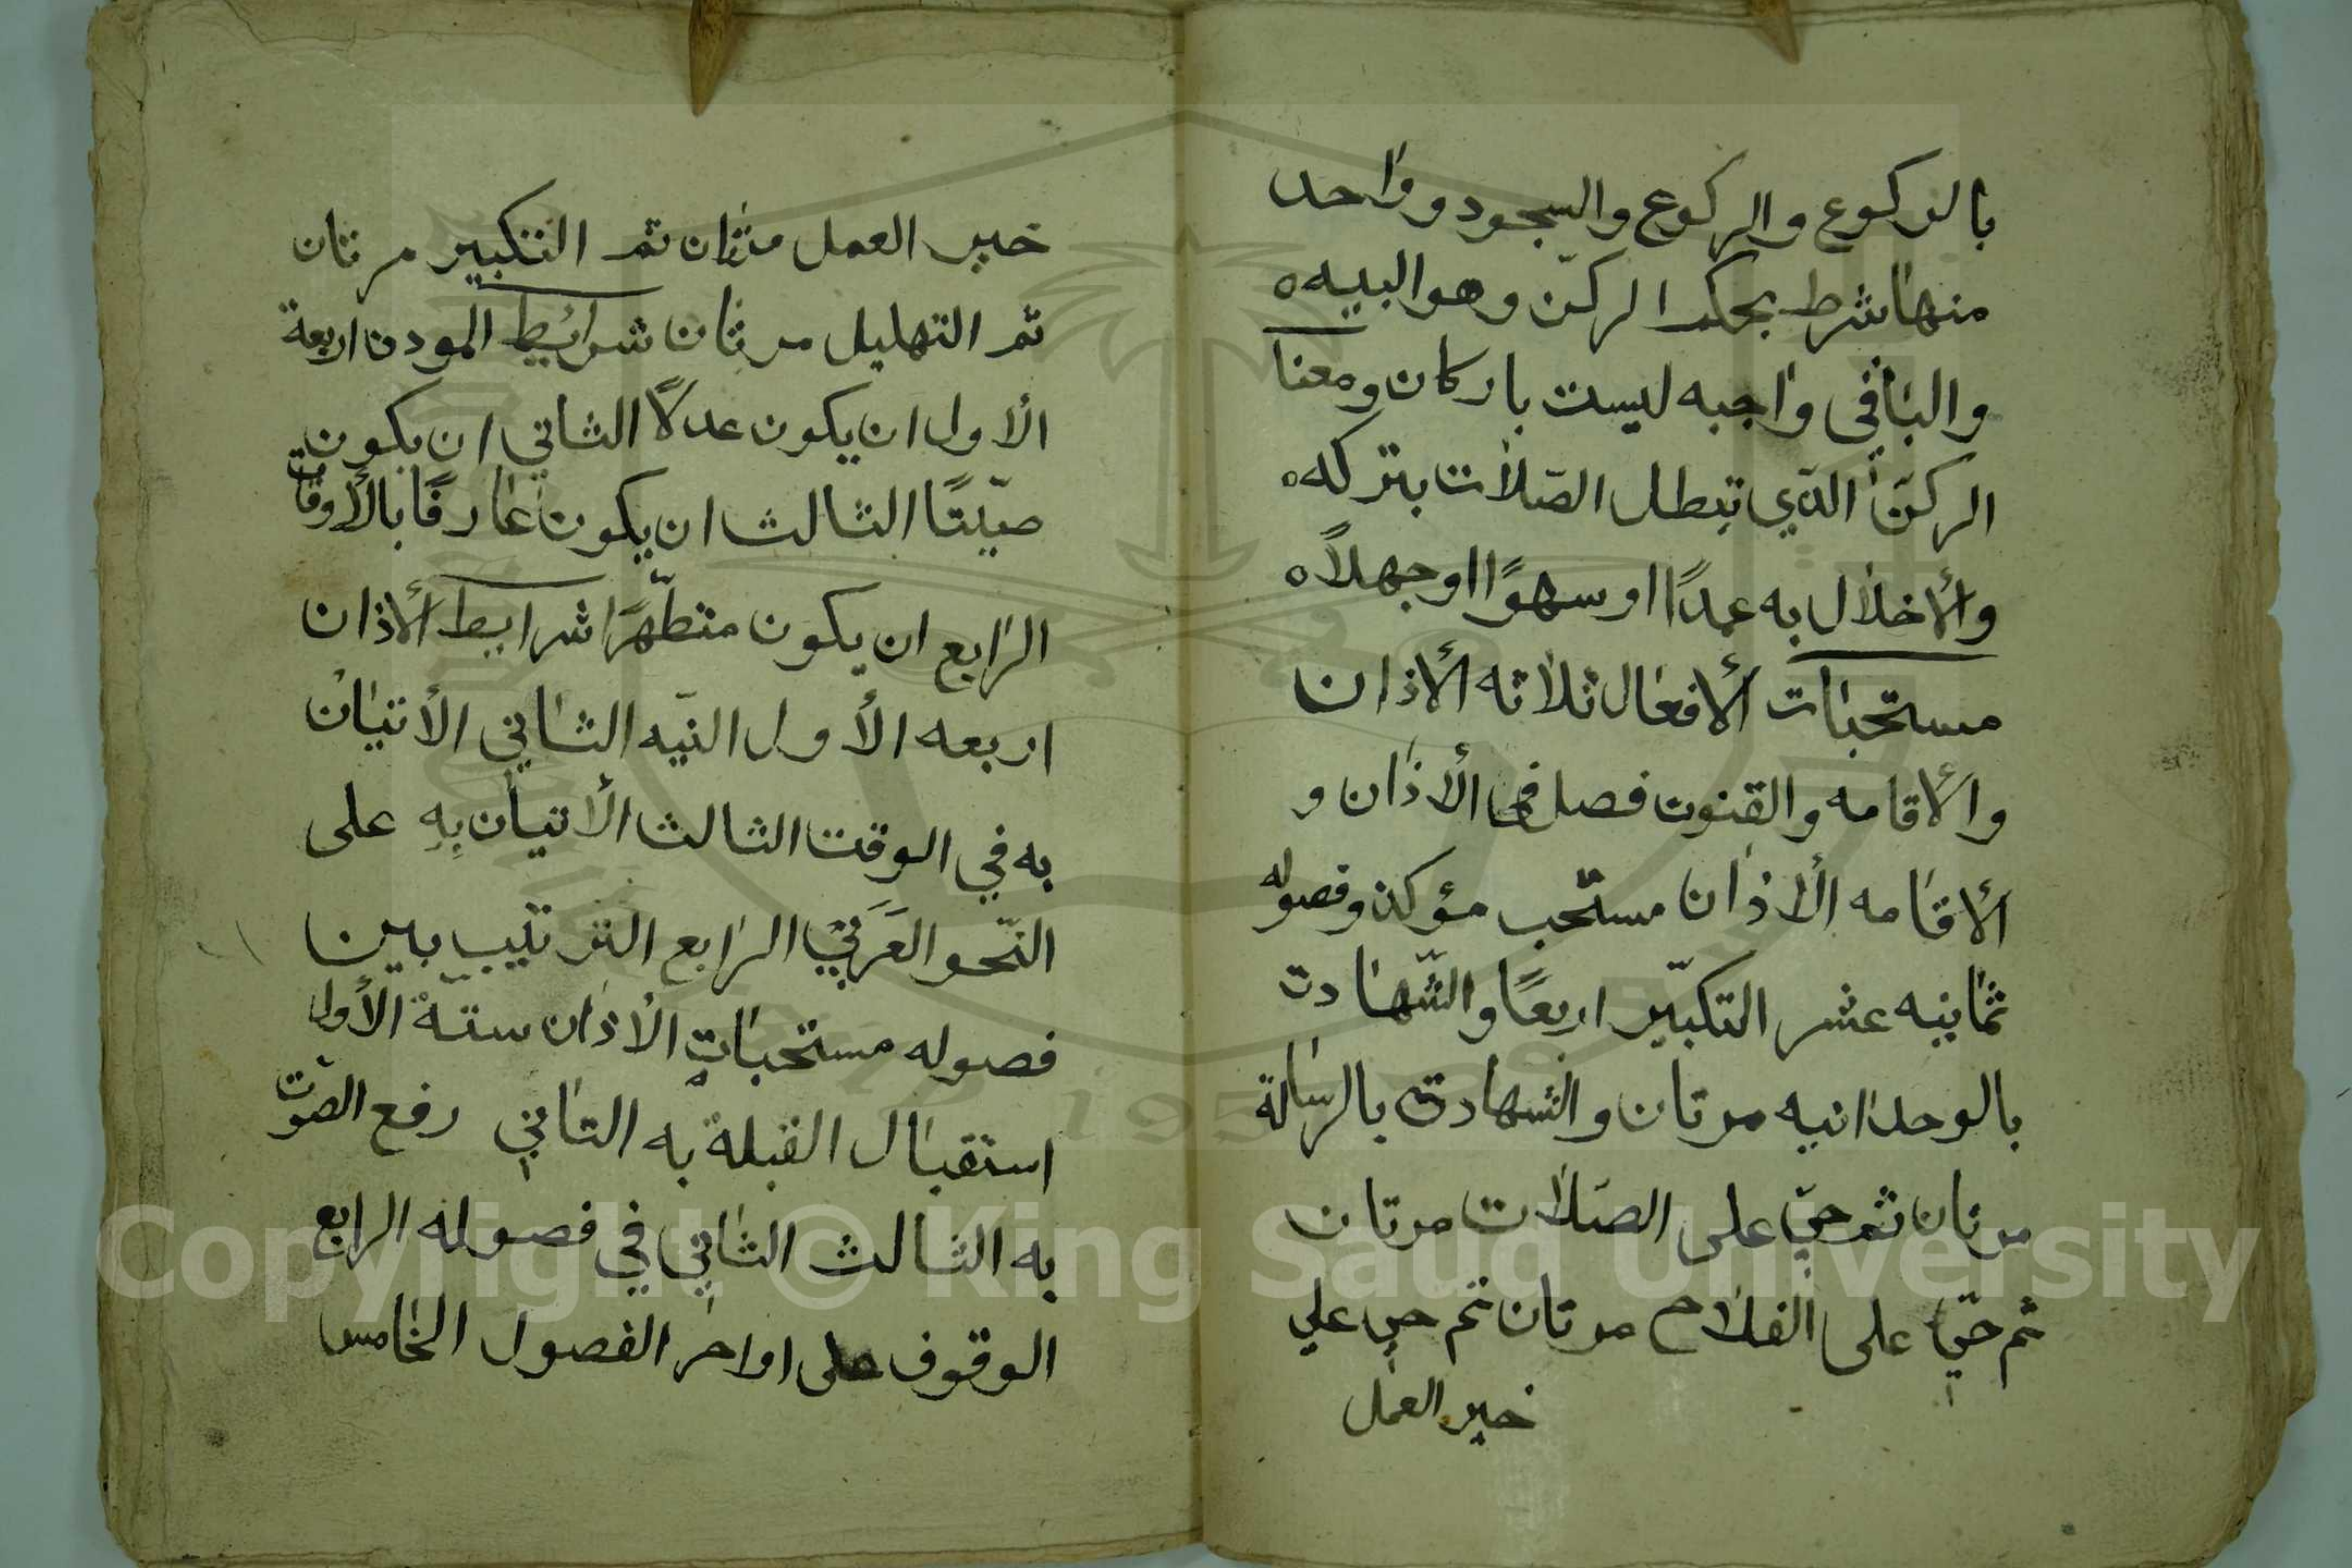 بالركوع والركوع والسجود وواحد
منها شرط بحكم الركن وهو البيه
والباقي واجبه ليست باركان ومعنا
الركن الذي تبطل الصلات بتركه
والأخلال به عمدًا او سهوًا او جهلاً
مستحبات الأفعال ثلاثه الأذان
والأقامه والقنوت فصل في الأذان و
الأقامه الأذان مستحب مؤكد وفصوله
ثمانيه عشر التكبير اربعًا والشهادت
بالوحدانيه مرتان والشهادت بالرسالة
مرتان ثم حيّ على الصلات مرتان
ثم حيّ على الفلاح مرتان ثم حي علي
خير العمل
خير العمل مرتان ثم التكبير مرتان
ثم التهليل مرتان شرائيط المودن اربعة
الأول ان يكون عدلاً الثاني ان يكون
صيّتًا الثالث ان يكون عارفًا بالأوقات
الرابع ان يكون متطهّرًا شرايط الأذان
اربعه الأول النيّه الثاني الأتيان
به في الوقت الثالث الأتيان بِهِ على
النّحو العَرَبيْ الرابع الترتيب بين
فصوله مستحبات الأذان ستة الأول
استقبال القبلة به الثاني رفع الصّوت
به الثالث الثاني في فصوله الرابع
الوقوف على اواخر الفصول الخامس
Copyright © King Saud University